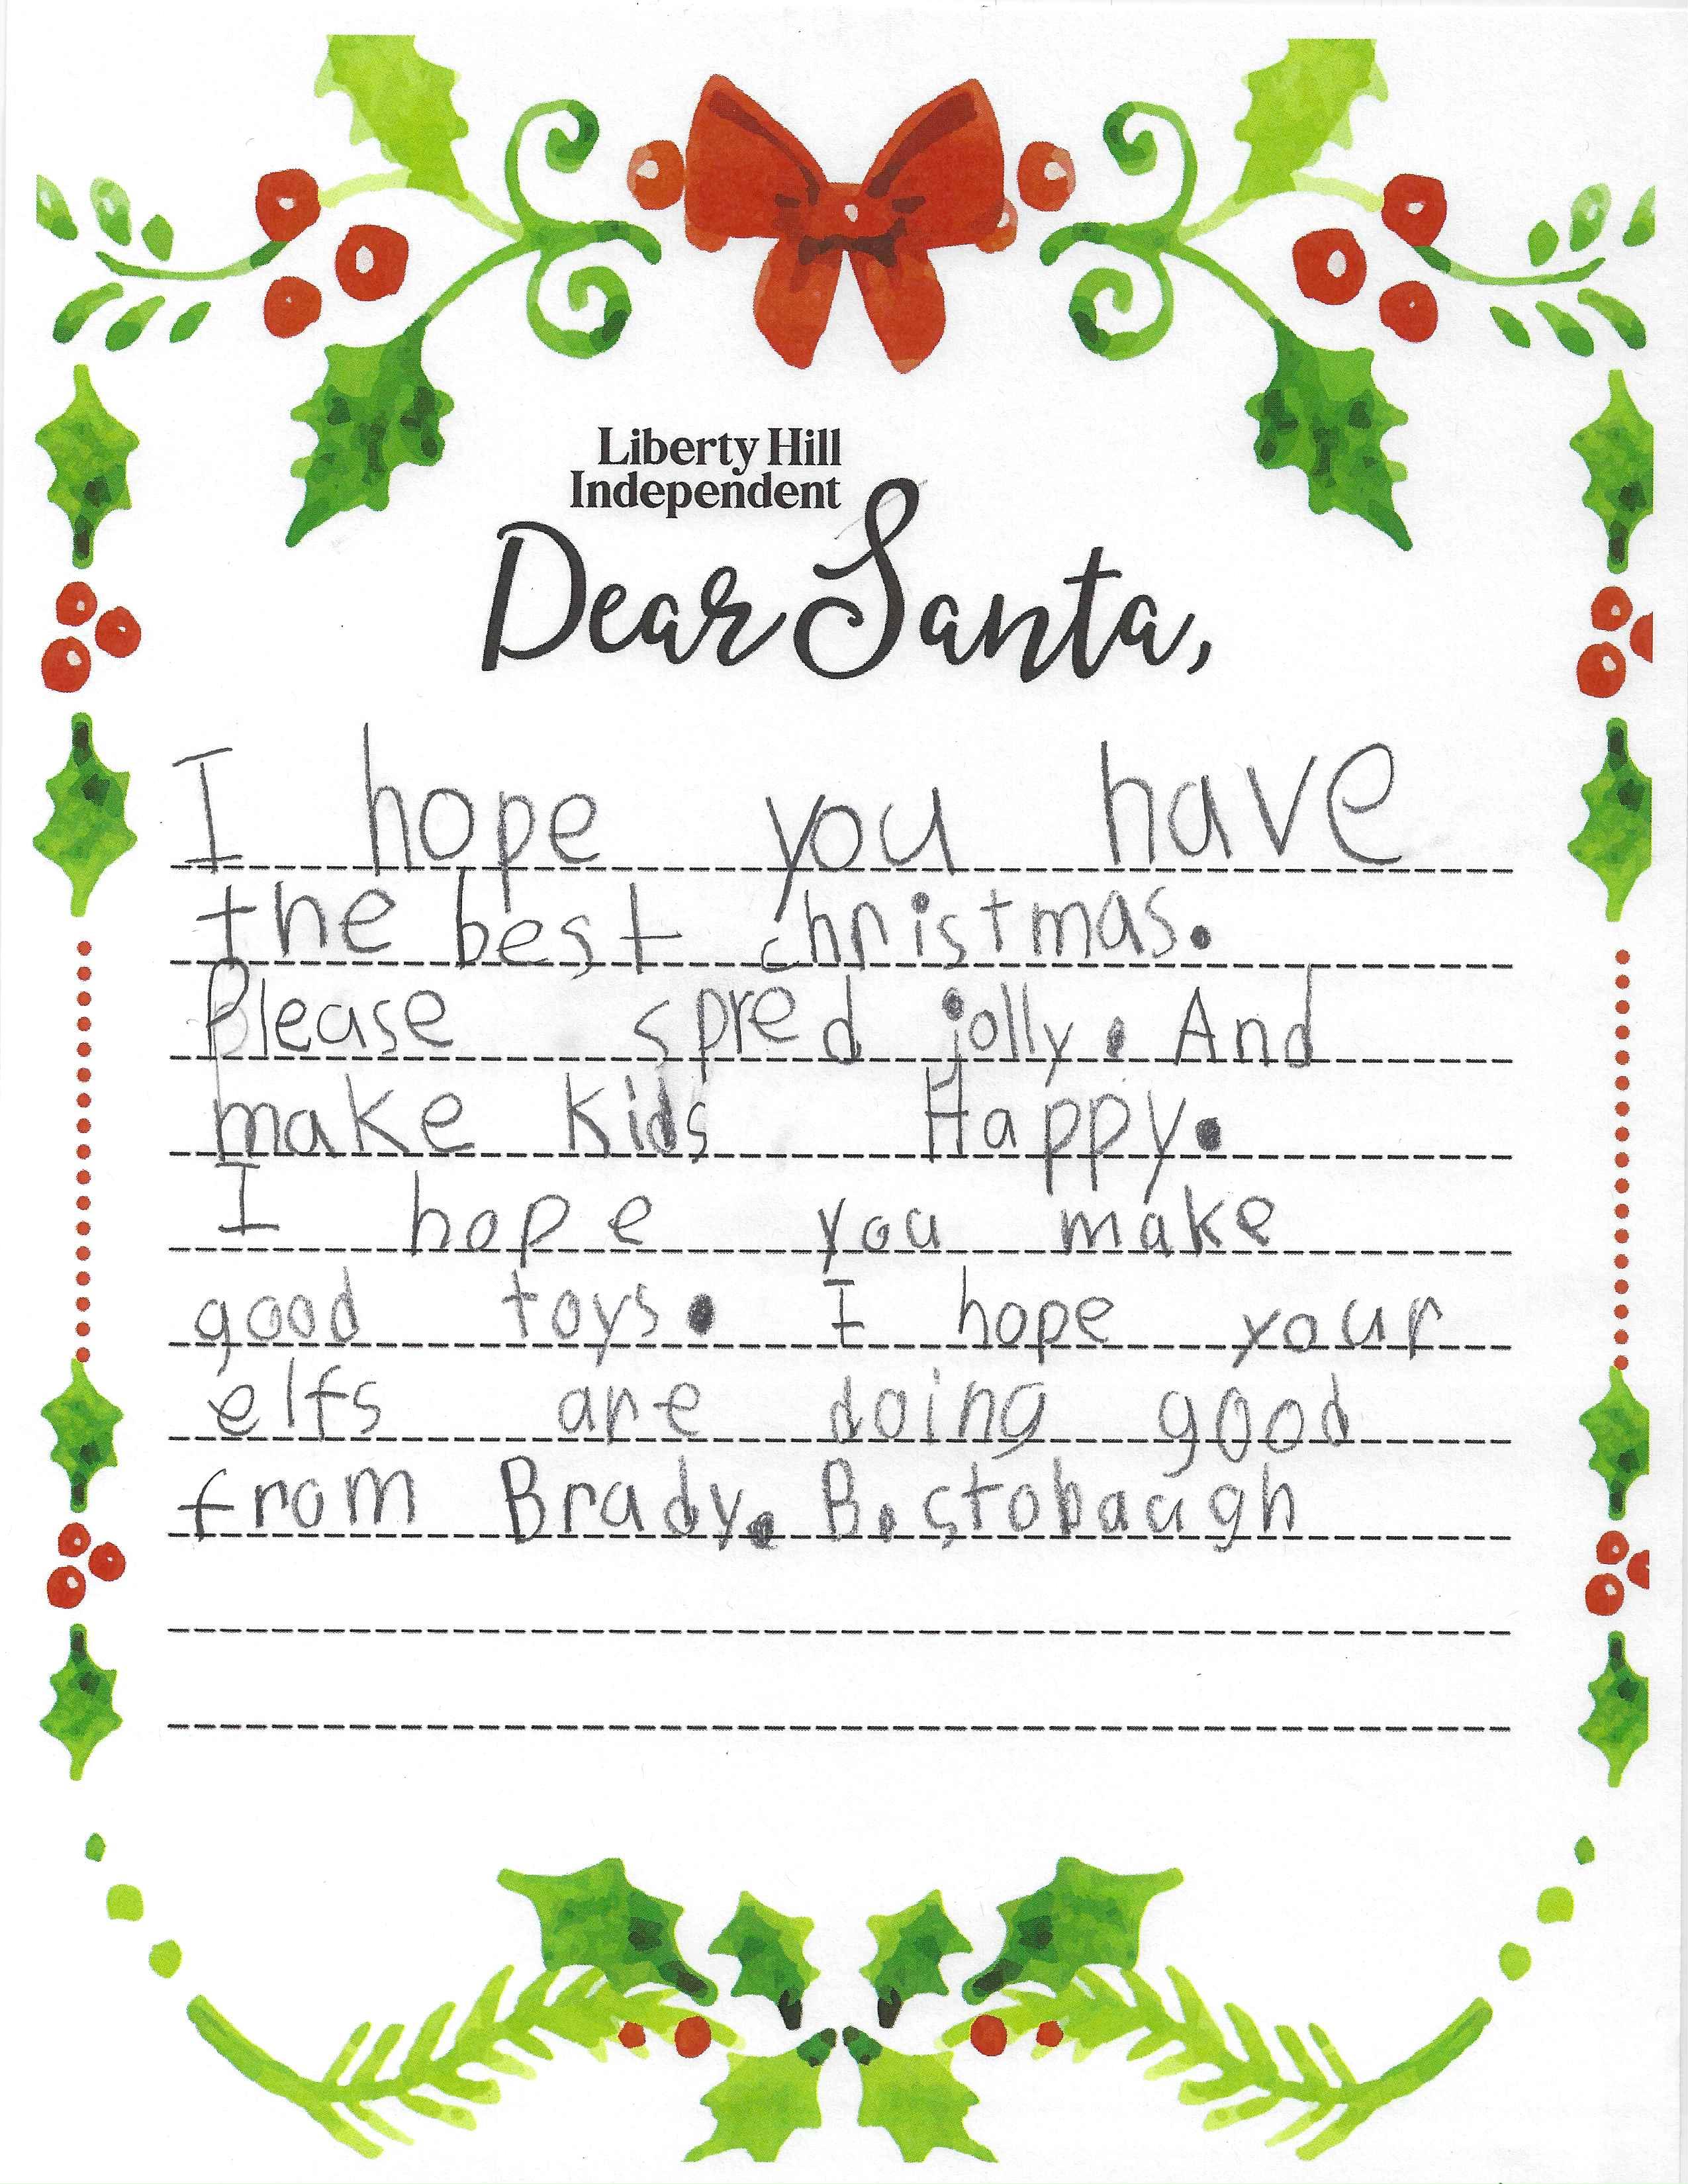 Liberty Hill
Independent
Dear Santa,
I hope you have
the best christmas.
Please spred jolly. And
make kids Happy.
I hope you make
good toys. I hope your
elfs are doing good
from Brady. B. stobaugh